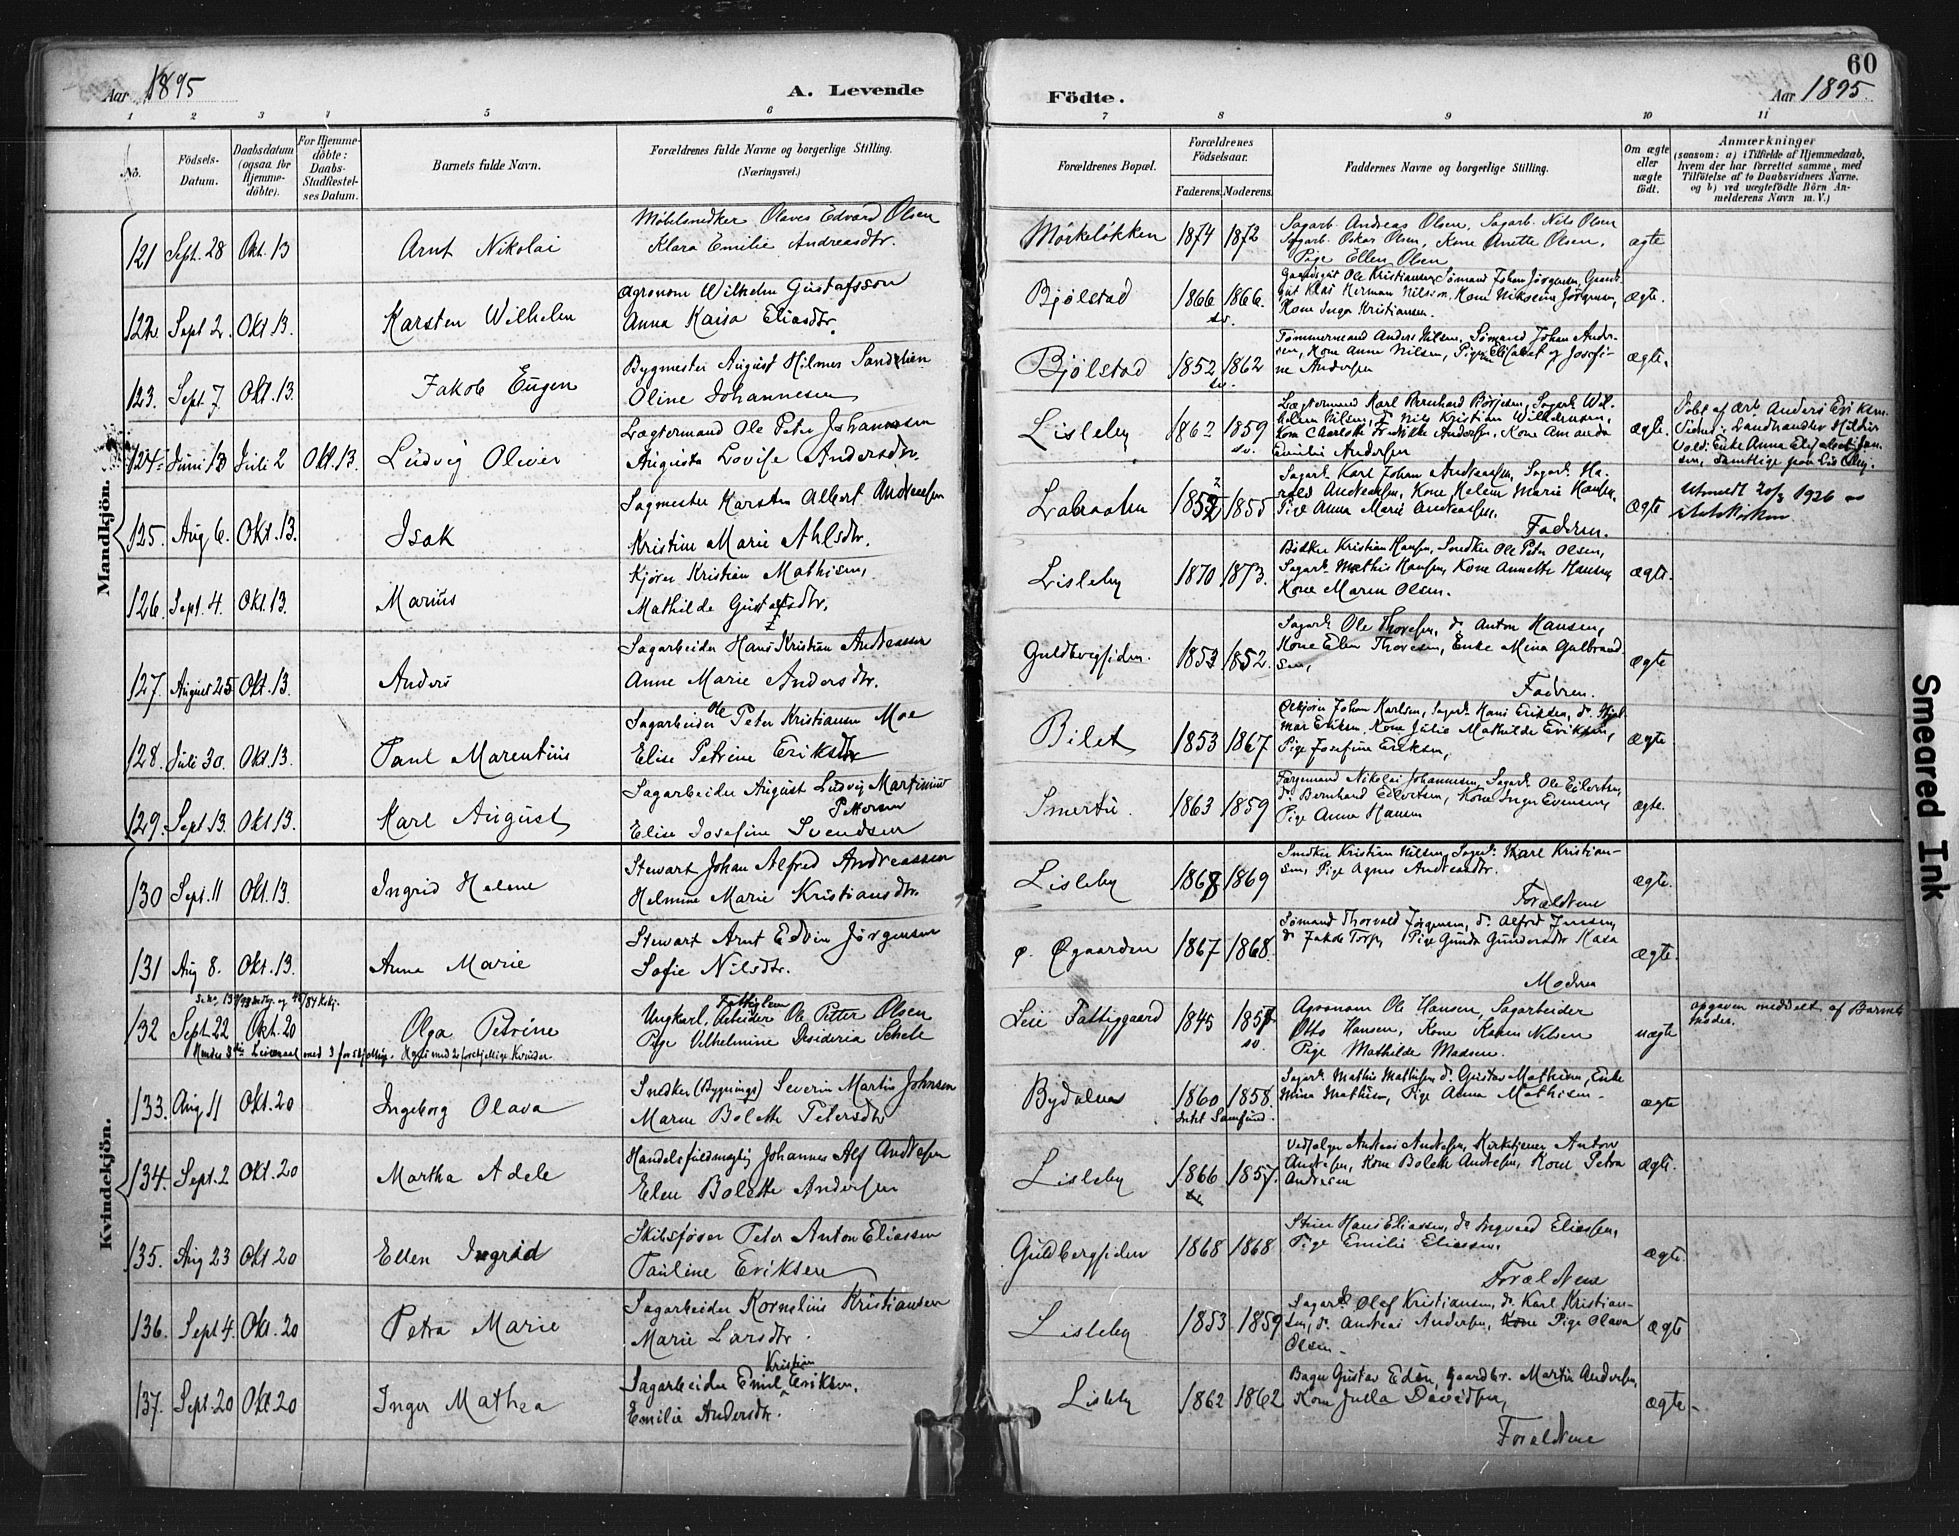 Aar 1895
A. Levende
Födte.
60
Aar 1895.
1 2 3 4 5 6 7 8 9 10 11
No.
Födsels-Datum.
Daabsdatum (ogsaa for Hjemme-döbte).
For Hjemme-döbte: Daabs-Stadfestel-ses Datum.
Barnets fulde Navn.
Forældrenes fulde Navne og borgerlige Stilling.
(Næringsvei.)
Forældrenes Bopæl.
Forældrenes Födselsaar.
Faderens. Moderens.
Faddernes Navne og borgerlige Stilling.
Om ægte eller uægte födt.
Anmerkninger
(saasom: a) i Tilfælde af Hjemmedaab, hvem der har forrettet samme, med Tilföielse af to Daabsvidners Navne, og b) ved uægtefödte Börn An-melderens Navn m. V.)
Mandkjön.
121 Sept. 28 Okt. 13 Arnt Nikolai
Möbelsnedker Olaves Edvard Olsen
Klara Emilie Andreasdtr.
Mörkelökken 1874 1872
Sagarb. Andreas Olsen, Sagarb. Nils Olsen
Sagarb. Oskar Olsen, Kone Anette Olsen,
Pige Ellen Olsen
ægte
122. Sept 2. Okt 13. Karsten Wilhelm
Agronom Wilhelm Gustafsson
Anna Kaisa Eliasdtr.
Bjölstad 1866 1866.
sv.
Gaardsgut Ole Kristiansen, Sömand Johan Jörgensen, Gaards-
gut Klas Herman Nilsson, Kone Jörgensen,
Kone Inga Kristiansen.
ægte.
123. Sept. 7. Okt. 13. Jakob Eugen
Bygmester August Hilmer
Oline Johannesen
Bjölstad 1852 1862
sv.
Tömmermand Anders Nilsen, Sömand Johan Ander-
sen, Kone Anne Nilsen, Pige Elisabet og Josefi-
ne Andersen
ægte.
124. Juni 13 Juli 2 Okt. 13. Ludvig Oliver
Lægtermand Ole Peter Johannesen
Augusta Lovise Andersdtr.
Lisleby 1862 1859
sv.
Lægtermand Karl Bernhard Börjesen, Sagarb. Wil-
helm Nilsen, d. Nils Kristian Wilhelmsen,
Kone Charlotte Andersen, Kone Amanda
Emilie Andersen
ægte.
Döbt af Arb. Anders Eriksen
Vidner: Landhandler
Enke Anna Elisabet
samtlige paa Lisleby.
125. Aug 6. Okt. 13. Isak
Sagmester Karsten Albert Andreassen
Kristine Marie Ahlsdtr.
1852 1855
Sagarb. Karl Johan Andreassen, Sagarb. Ha-
rald Andreassen, Kone Helene Marie Hansen,
Pige Anna Marie Andreassen.
Faderen.
ægte
Utmeldt 20/3 1926
126. Sept. 4. Okt. 13. Marius
Kjörer Kristian Mathisen,
Mathilde Gustafsdtr.
Lisleby 1870 1873.
Bödker Kristian Hansen, Snedker Ole Peter Olsen,
Sagarb. Mathis Hansen, Kone Annette Hansen
Kone Maren Olsen.
ægte.
127. August 25 Okt. 13. Anders
Sagarbeider Hans Kristian Andreassen
Anne Marie Andersdtr.
Guldbergsiden. 1853 1852.
Sagarb. Ole Thoresen, d. Anton Hansen,
Kone Elen Thoresen, Enke Mina Gulbrand-
sen,
Faderen.
ægte
128. Juli 30. Okt. 13. Paul Marentius
Sagarbeider Ole Peter Kristiansen Moe
Elise Petrine Eriksdtr
Bilet 1853 1867
Johan Karlsen, Sagarb. Hans Eriksen, d. Hjal-
mar Eriksen, Kone Julie Mathilde Eriksen,
Pige Josefine Eriksen,
ægte
129. Sept 13. Okt 13. Karl August
Sagarbeider August Ludvig Martinius
Pettersen
Elise Josefine Svendsen
Smertu. 1863 1859
Færgemand Nikolai Johannesen, Sagarb. Ole Eilertsen,
d. Bernhard Eilertsen, Kone Inger Evensen,
Pige Anna Hansen
ægte.
Kvindekjön.
130 Sept. 11 Okt. 13. Ingrid Helene
Stewart Johan Alfred Andreassen
Helmine Marie Kristiansdtr.
Lisleby 1868 1869
Snedker Kristian Nilsen, Sagarb. Karl Kristian-
sen, Pige Agnes Andreasdtr.
Forældrene
ægte.
131 Aug 8. Okt. 13. Anna Marie
Stewart Arnt Edvin Jörgensen
Sofie Nilsdtr.
ø. Øgaarden 1867 1868.
Sömand Thorvald Jörgensen, d. Alfred Jensen,
d. Jakob Torp, Pige Gunda Gundersdtr Kasa
Moderen
ægte.
132 Sept. 22 Okt. 20 Olga Petrine
Ungkarl, Arbeider Fattiglem Ole Petter Olsen
Pige Vilhelmine Desideria Schele
Leie Fattiggaard 1845 1857
sv.
Agronom Ole Hansen, Sagarbeider
Otto Hansen, Kone Karen Nilsen
Pige Mathilde Madsen.
uægte
opgaven meddelt af Barnets
Moder.
Hendes 3die Leiermaal med 3 forskjellige. Hans med 2 forskjellige Kvinder.
133. Aug. 11 Okt. 20 Ingeborg Olava
Snedker (Bygnings) Severin Martin Johnsen
Maren Bolette Petersdtr
Bydalen 1860 1858.
Intet Samfund.
Sagarb. Mathis Mathisen, d. Gustav Mathisen, Enke
Mina Mathisen, Pige Anna Mathisen.
ægte
134. Sept. 2 Okt. 20 Martha Adele
Handelsfuldmægtig Johannes Alf Andresen
Elen Bolette Andersen
Lisleby 1866 1857.
Vedsælger Andreas Andresen, Kirketjener Anton
Andresen, Kone Bolette Andresen, Kone Petra
Andresen
ægte.
135. Aug 23 Okt 20 Ellen Ingrid
Skibsförer Peter Anton Eliassen
Pauline Eriksen
Guldbergsiden 1868 1868
Hans Eliassen, d. Ingvard Eliassen,
Pige Emilie Eliassen.
Forældrene
ægte.
136. Sept 4. Okt. 20 Petra Marie
Sagarbeider Kornelius Kristiansen
Marie Larsdtr.
Lisleby 1853 1859
Sagarb. Olaf Kristiansen, d. Karl Kristian-
sen, d. Andreas Andersen, Kone Pige Olava
Olsen.
ægte
137. Sept. 20 Okt. 20 Inger Mathea
Sagarbeider Emil Kristian Eriksen.
Emilie Andersdtr.
Lisleby 1862 1862
Bager Gustav Edén, Gaardbr. Martin Andersen,
Kone Julla Davidsen,
Forældrene
ægte.
Smeared Ink